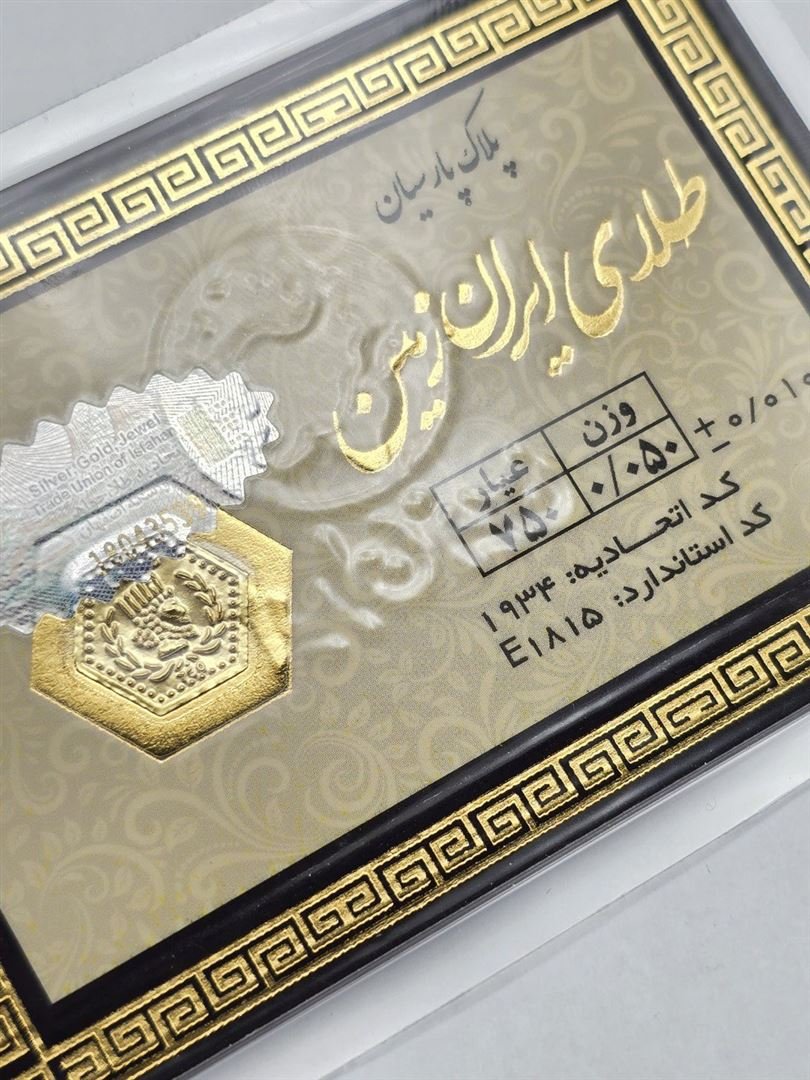 پلاک پارسیان
طلای ایران زمین
وزن عیار
۰/۰۵۰ ۷۵۰
± ۰/۰۱۰
کد اتحادیه: ۱۹۳۴
کد استاندارد: E۱۸۱۵
Silver Gold Jewel
Trade Union of Isfahan
۷۵۰